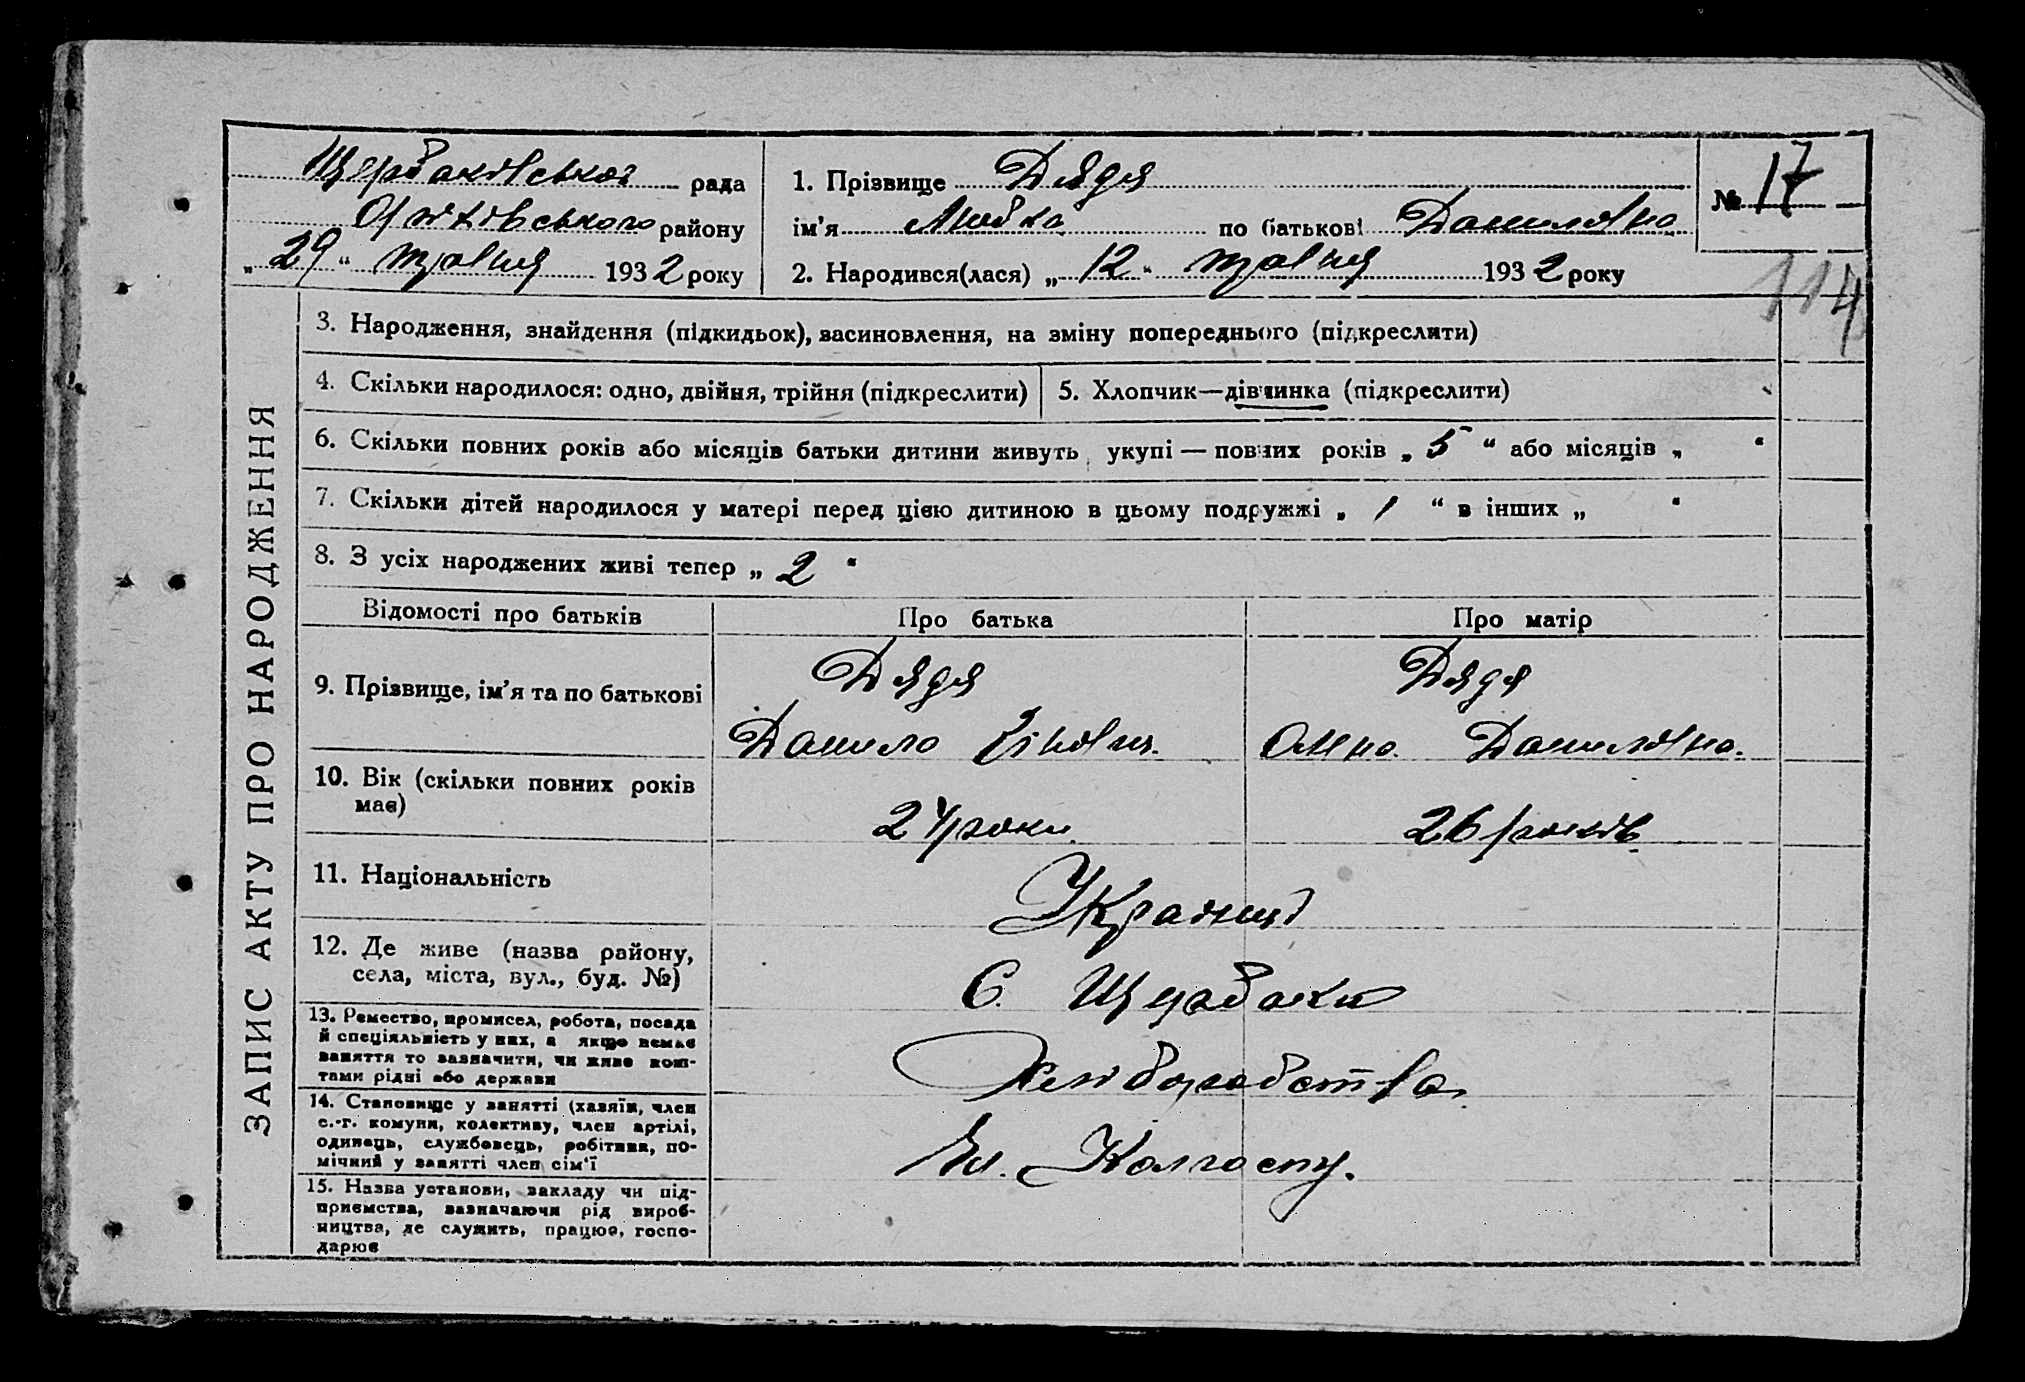 Щербаківської рада
району
„ 29 “ травня 1932 року
1. Прізвище Дядя
ім'я Любка по батькові Данилівна
2. Народився(лася) „ 12 “ травня 1932 року
№ 17
114
ЗАПИС АКТУ ПРО НАРОДЖЕННЯ
3. Народження, знайдення (підкидьок), засиновлення, на зміну попереднього (підкреслити)
4. Скільки народилося: одно, двійня, трійня (підкреслити)
5. Хлопчик—дівчинка (підкреслити)
6. Скільки повних років або місяців батьки дитини живуть укупі — повних років „ 5 “ або місяців „ “
7. Скільки дітей народилося у матері перед цією дитиною в цьому подружжі „ 1 “ в інших „ “
8. З усіх народжених живі тепер „ 2 “
Відомості про батьків
Про батька
Про матір
9. Прізвище, ім'я та по батькові
Дядя
Данило
Дядя
Данилівна.
10. Вік (скільки повних років
має)
24 роки
26 років
11. Національність
Українці
12. Де живе (назва району,
села, міста, вул., буд. №)
С. Щербаки
13. Ремество, промисел, робота, посада
й спеціяльність у них, а якщо немає
заняття то зазначити, чи живе кош-
тами рідні або держави
Хліборобство.
14. Становище у занятті (хазяїн, член
с.-г. комуни, колективу, член артілі,
одинець, службовець, робітник, по-
мічний у занятті член сім'ї
Чл. Колгоспу.
15. Назва установи, закладу чи під-
приємства, зазначаючи рід вироб-
ництва, де служить, працює, госпо-
дарює